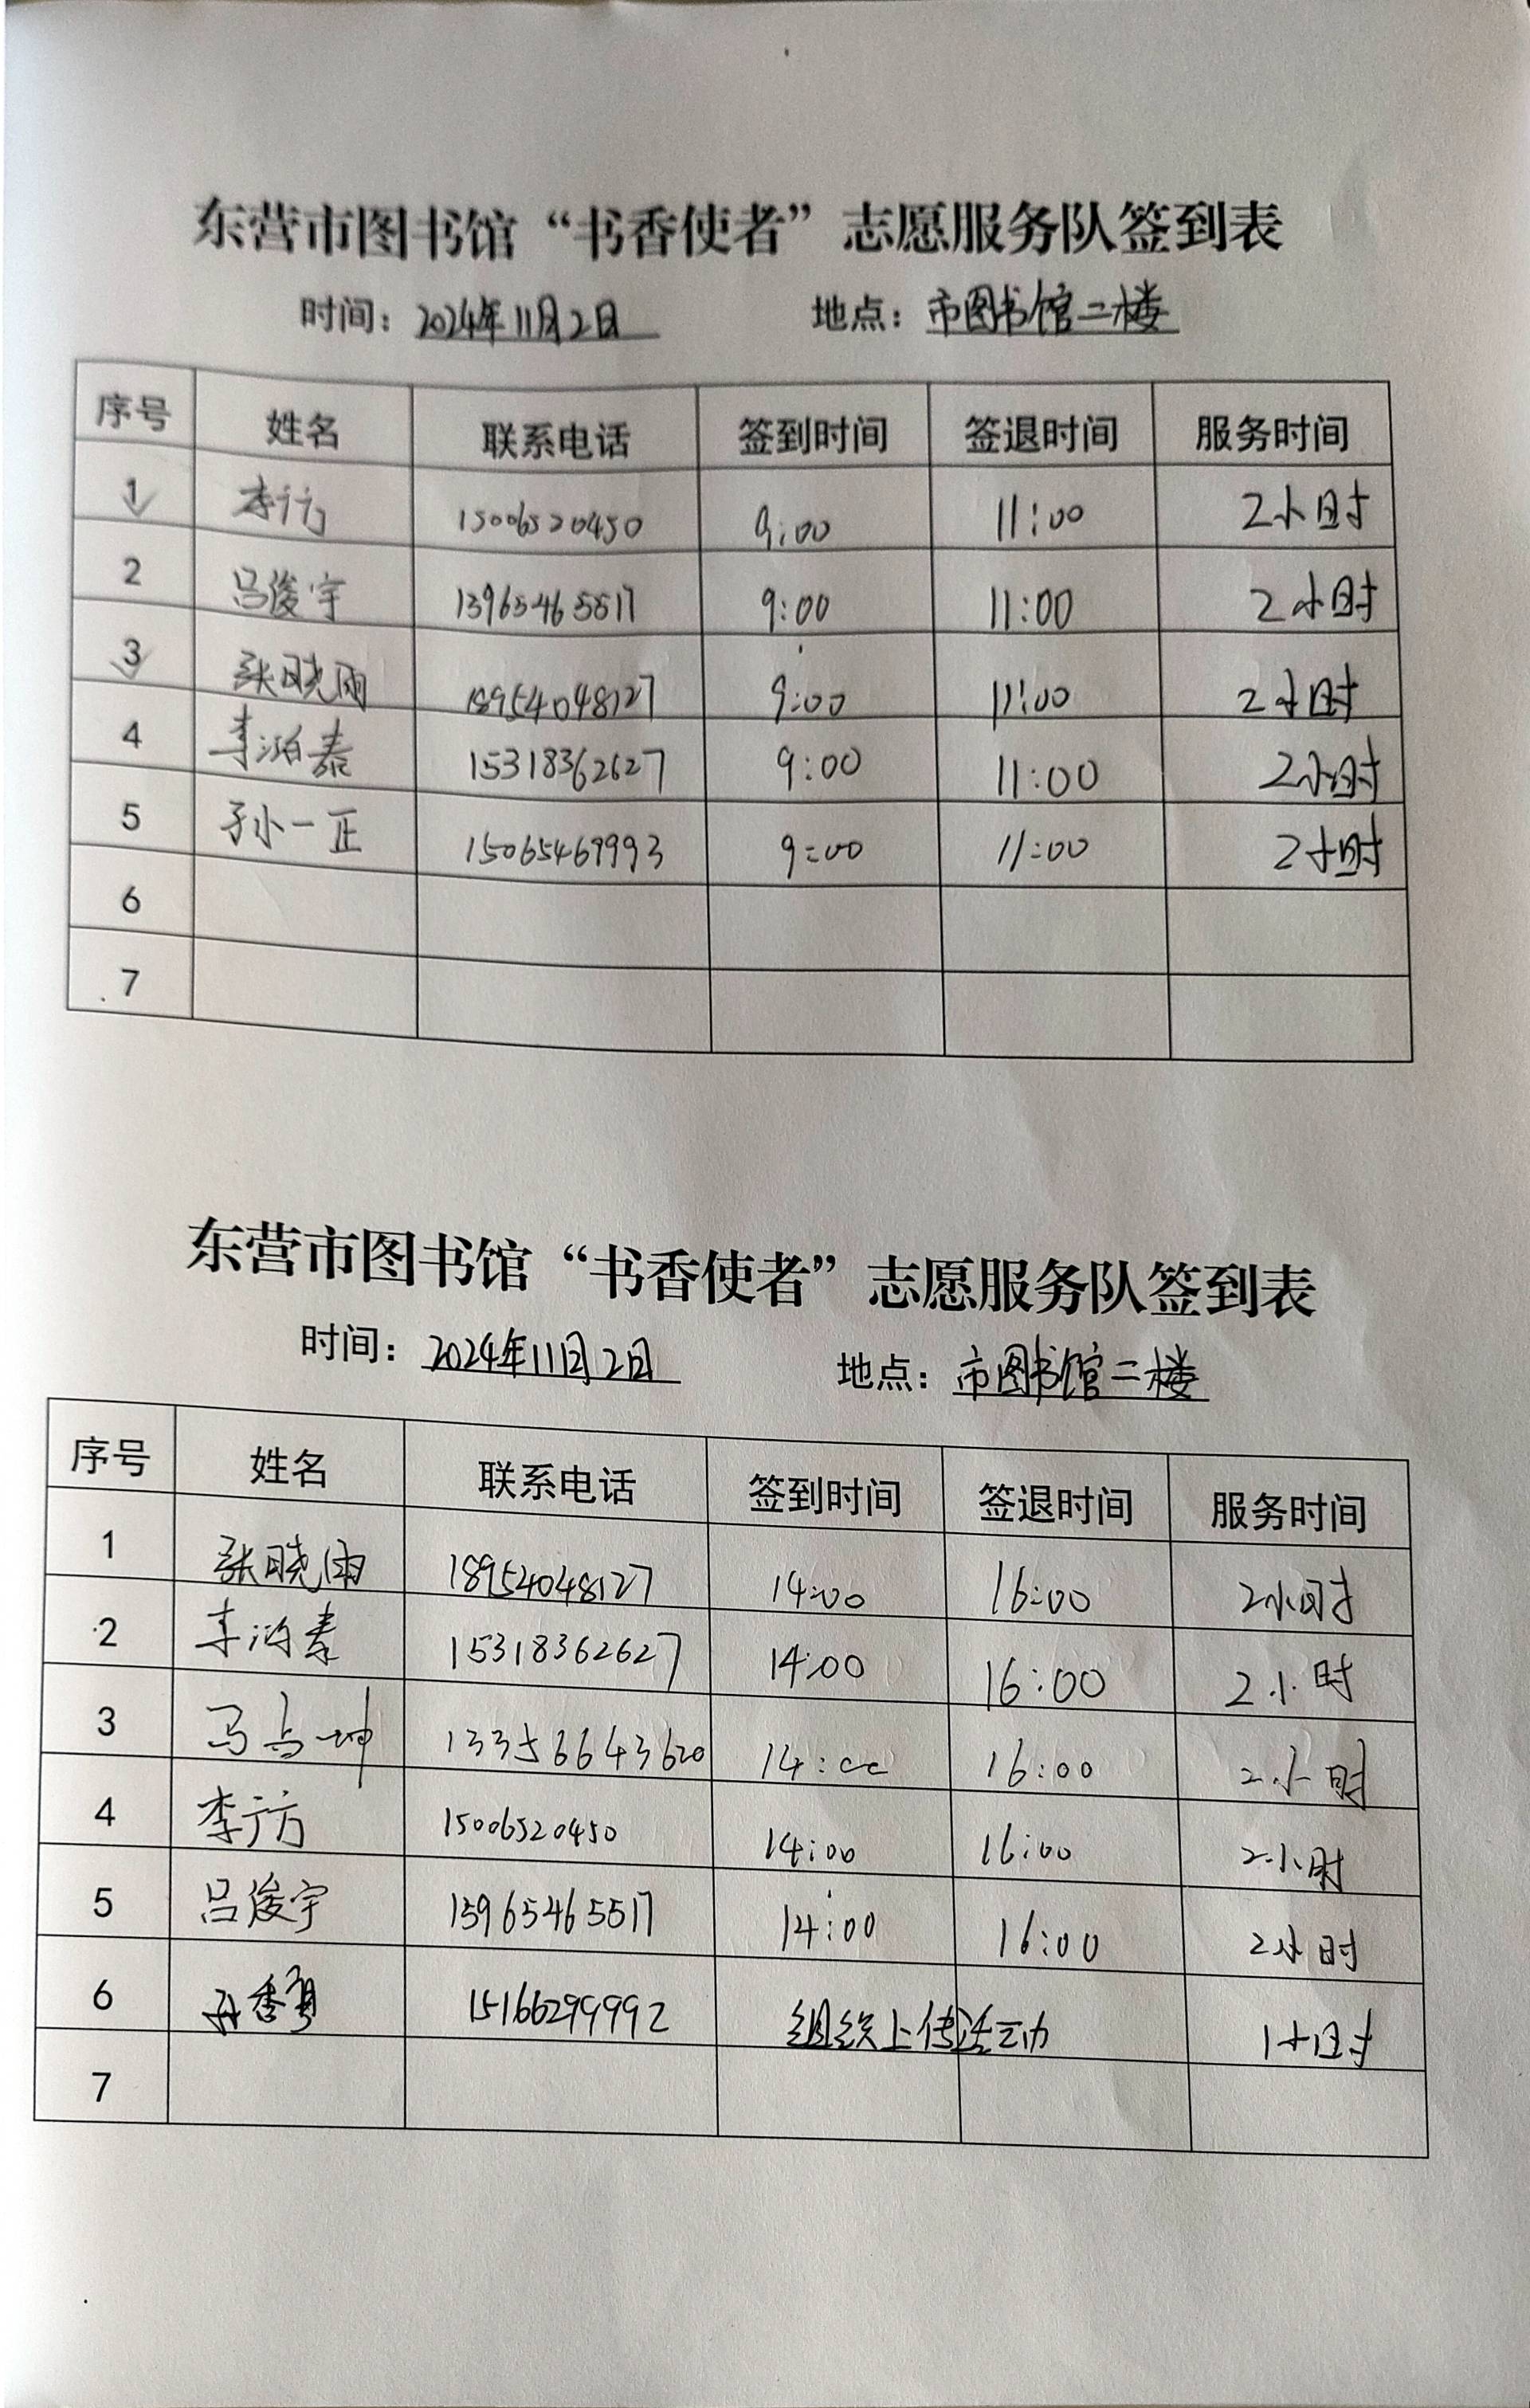 东营市图书馆“书香使者”志愿服务队签到表
时间：2024年11月2日 地点：市图书馆二楼
序号 姓名 联系电话 签到时间 签退时间 服务时间
1 李方 15006520450 9:00 11:00 2小时
2 吕俊宇 13965465517 9:00 11:00 2小时
3 张晓雨 18954048127 9:00 11:00 2小时
4 李泊泰 15318362627 9:00 11:00 2小时
5 孙一正 15065469993 9:00 11:00 2小时
6
7
东营市图书馆“书香使者”志愿服务队签到表
时间：2024年11月2日 地点：市图书馆二楼
序号 姓名 联系电话 签到时间 签退时间 服务时间
1 张晓雨 18954048127 14:00 16:00 2小时
2 李泊泰 15318362627 14:00 16:00 2小时
3 13356643620 14:00 16:00 2小时
4 李方 15006520450 14:00 16:00 2小时
5 吕俊宇 13965465517 14:00 16:00 2小时
6 15166299992 组织上传活动 1小时
7